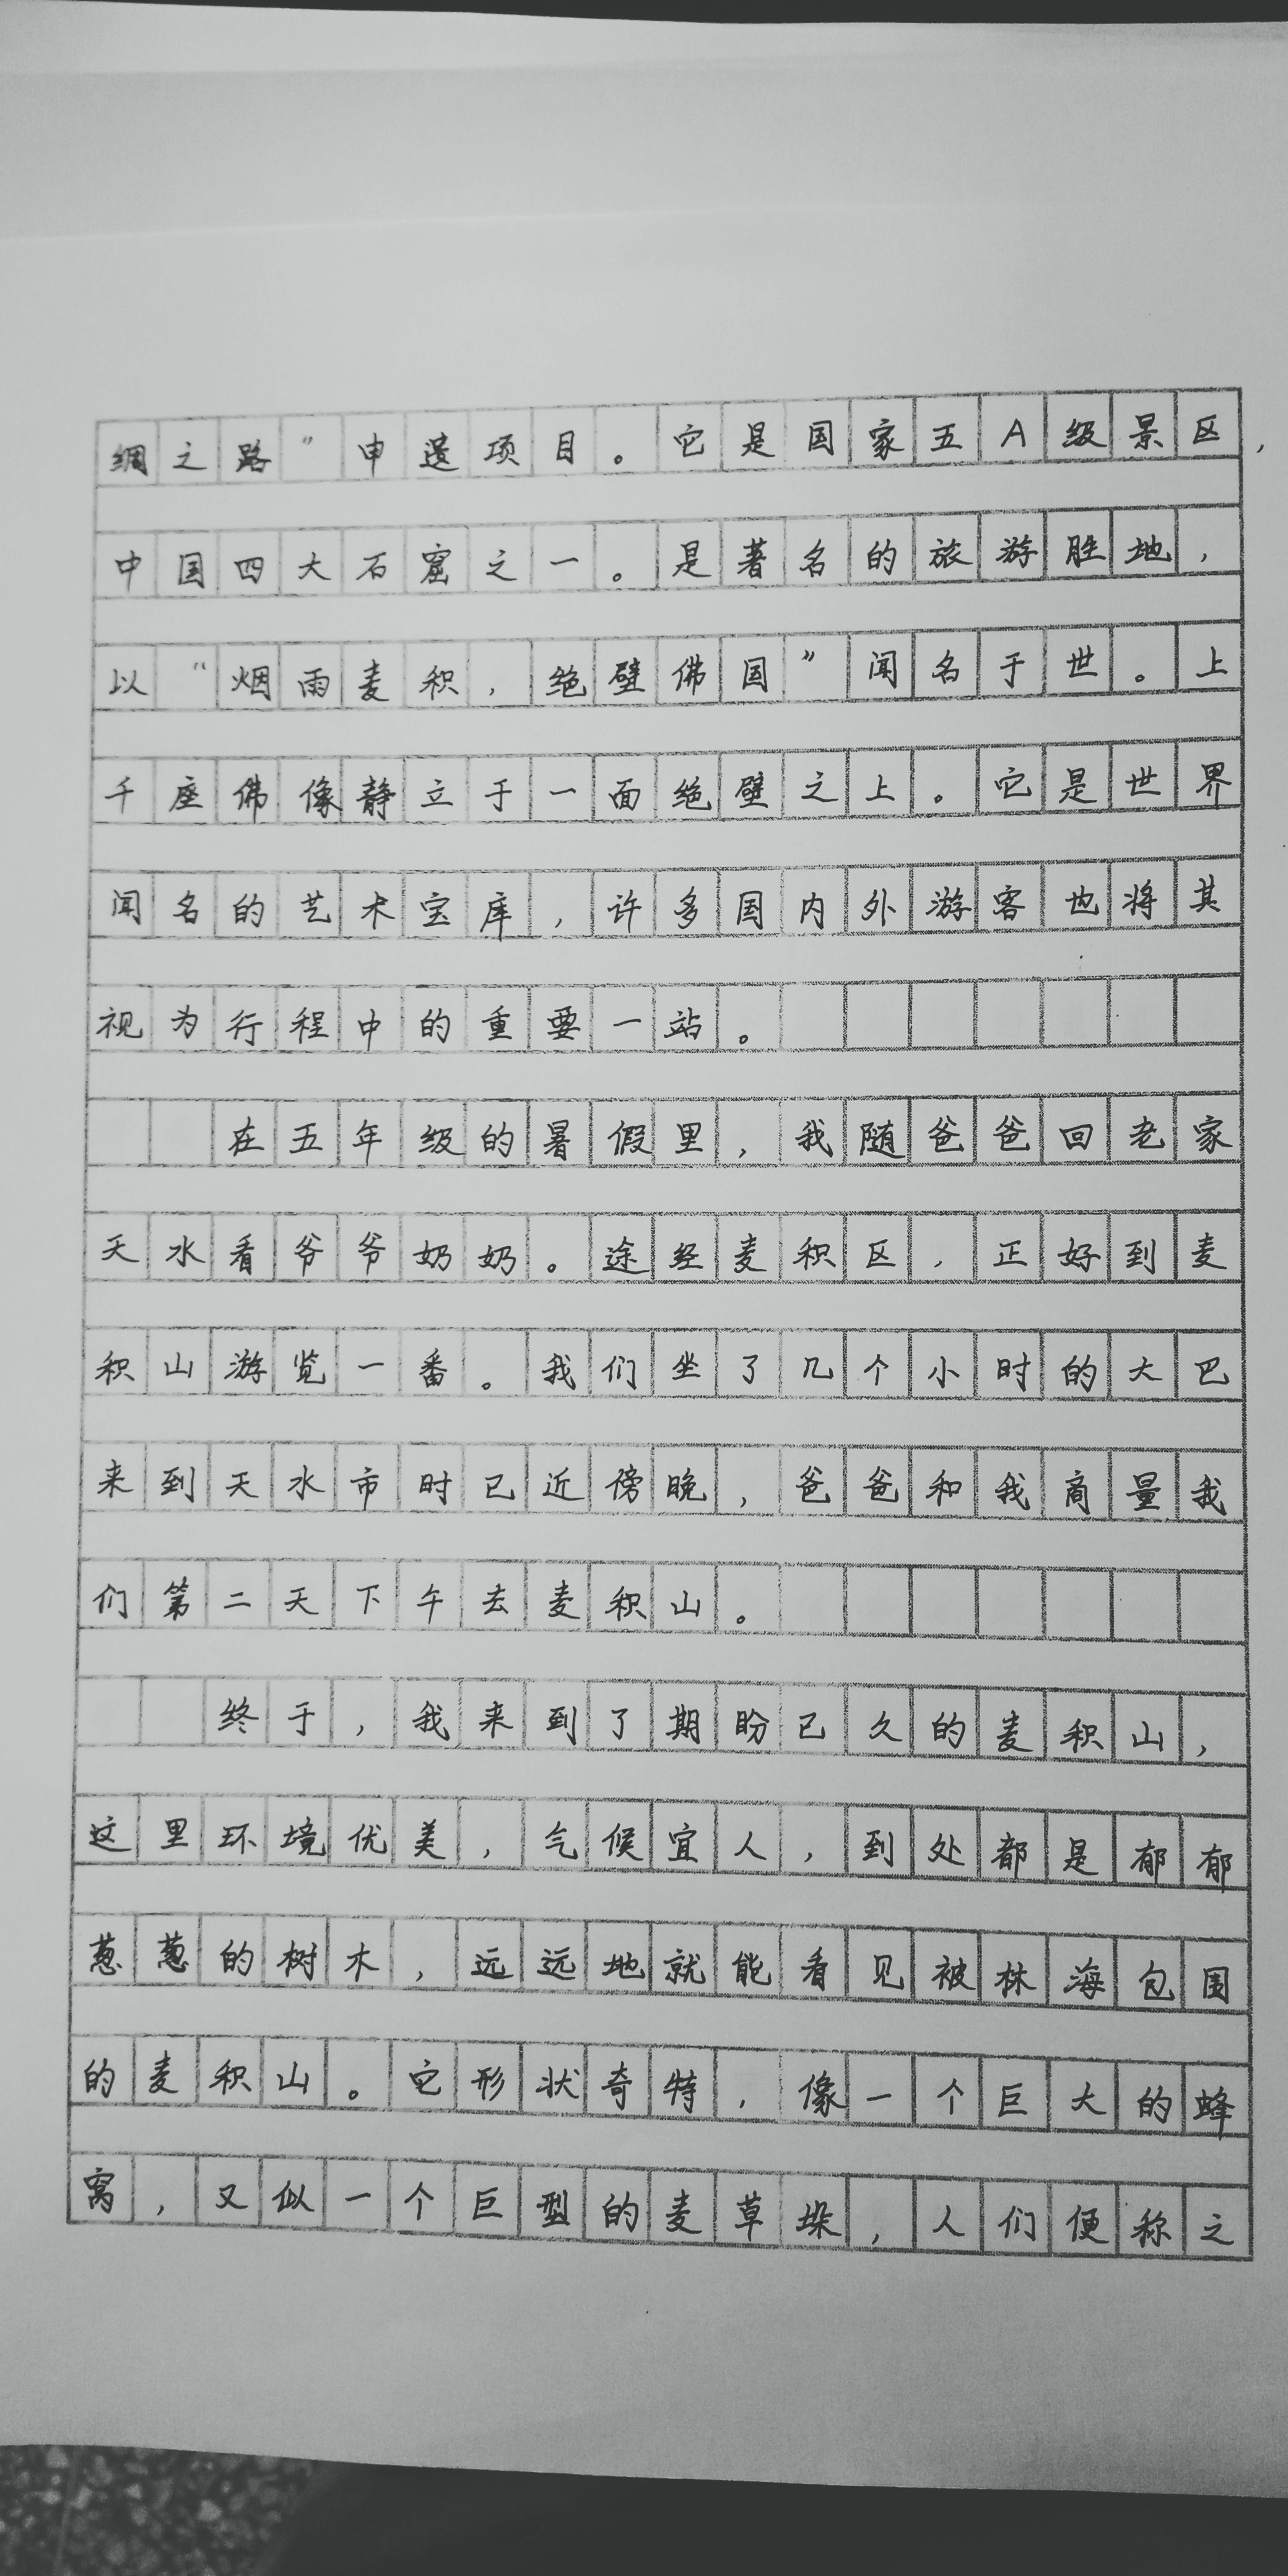 绸之路”申遗项目。它是国家五A级景区，
中国四大石窟之一。是著名的旅游胜地，
以“烟雨麦积，绝壁佛国”闻名于世。上
千座佛像静立于一面绝壁之上。它是世界
闻名的艺术宝库，许多国内外游客也将其
视为行程中的重要一站。
在五年级的暑假里，我随爸爸回老家
天水看爷爷奶奶。途经麦积区，正好到麦
积山游览一番。我们坐了几个小时的大巴
来到天水市时已近傍晚，爸爸和我商量我
们第二天下午去麦积山。
终于，我来到了期盼已久的麦积山，
这里环境优美，气候宜人，到处都是郁郁
葱葱的树木，远远地就能看见被林海包围
的麦积山。它形状奇特，像一个巨大的蜂
窝，又似一个巨型的麦草垛，人们便称之